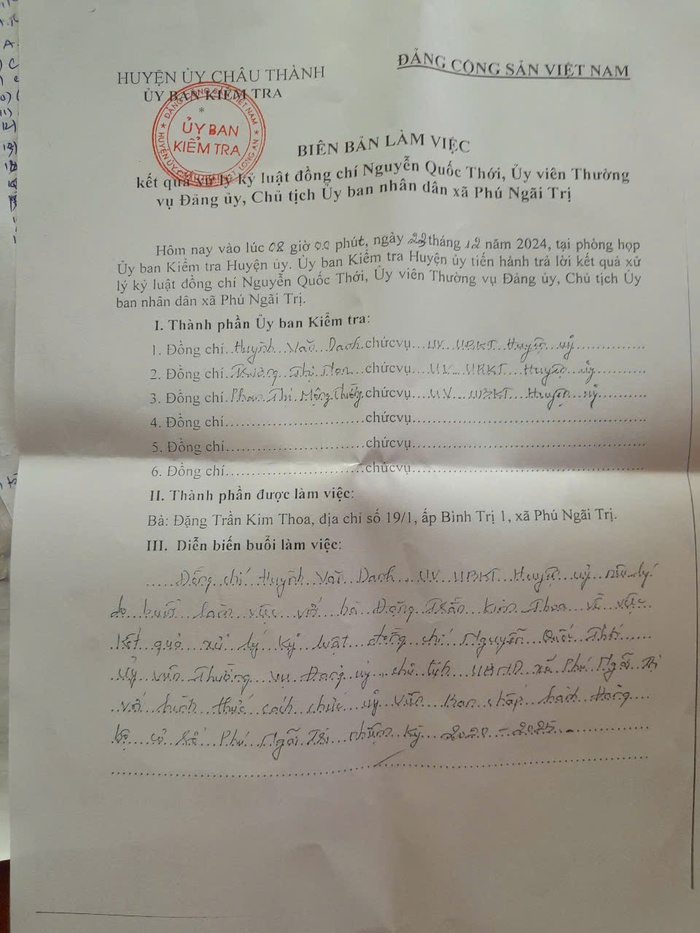 HUYỆN ỦY CHÂU THÀNH
ỦY BAN KIỂM TRA
*
ĐẢNG CỘNG SẢN VIỆT NAM
ỦY BAN
KIỂM TRA
BIÊN BẢN LÀM VIỆC
kết quả xử lý kỷ luật đồng chí Nguyễn Quốc Thới, Ủy viên Thường
vụ Đảng ủy, Chủ tịch Ủy ban nhân dân xã Phú Ngãi Trị
Hôm nay vào lúc 08 giờ 00 phút, ngày 23 tháng 12 năm 2024, tại phòng họp
Ủy ban Kiểm tra Huyện ủy. Ủy ban Kiểm tra Huyện ủy tiến hành trả lời kết quả xử
lý kỷ luật đồng chí Nguyễn Quốc Thới, Ủy viên Thường vụ Đảng ủy, Chủ tịch Ủy
ban nhân dân xã Phú Ngãi Trị.
I. Thành phần Ủy ban Kiểm tra:
1. Đồng chí Huỳnh Văn Danh chứcvụ UV UBKT Huyện uỷ
2. Đồng chí Thị chứcvụ UV UBKT Huyện uỷ
3. Đồng chí Phan Thị Mộng chứcvụ UV UBKT Huyện uỷ
4. Đồng chí chứcvụ
5. Đồng chí chứcvụ
6. Đồng chí chứcvụ
II. Thành phần được làm việc:
Bà: Đặng Trần Kim Thoa, địa chỉ số 19/1, ấp Bình Trị 1, xã Phú Ngãi Trị.
III. Diễn biến buổi làm việc:
Đồng chí Huỳnh Văn Danh UV UBKT Huyện uỷ nêu lý
do buổi làm việc với bà Đặng Trần Kim Thoa về việc
kết quả xử lý kỷ luật đồng chí Nguyễn Quốc Thới
uỷ viên Thường vụ Đảng uỷ, chủ tịch UBND xã Phú Ngãi Trị
với hình thức cách chức uỷ viên Ban chấp hành Đảng
bộ xã Phú Ngãi Trị nhiệm kỳ 2020 - 2025.